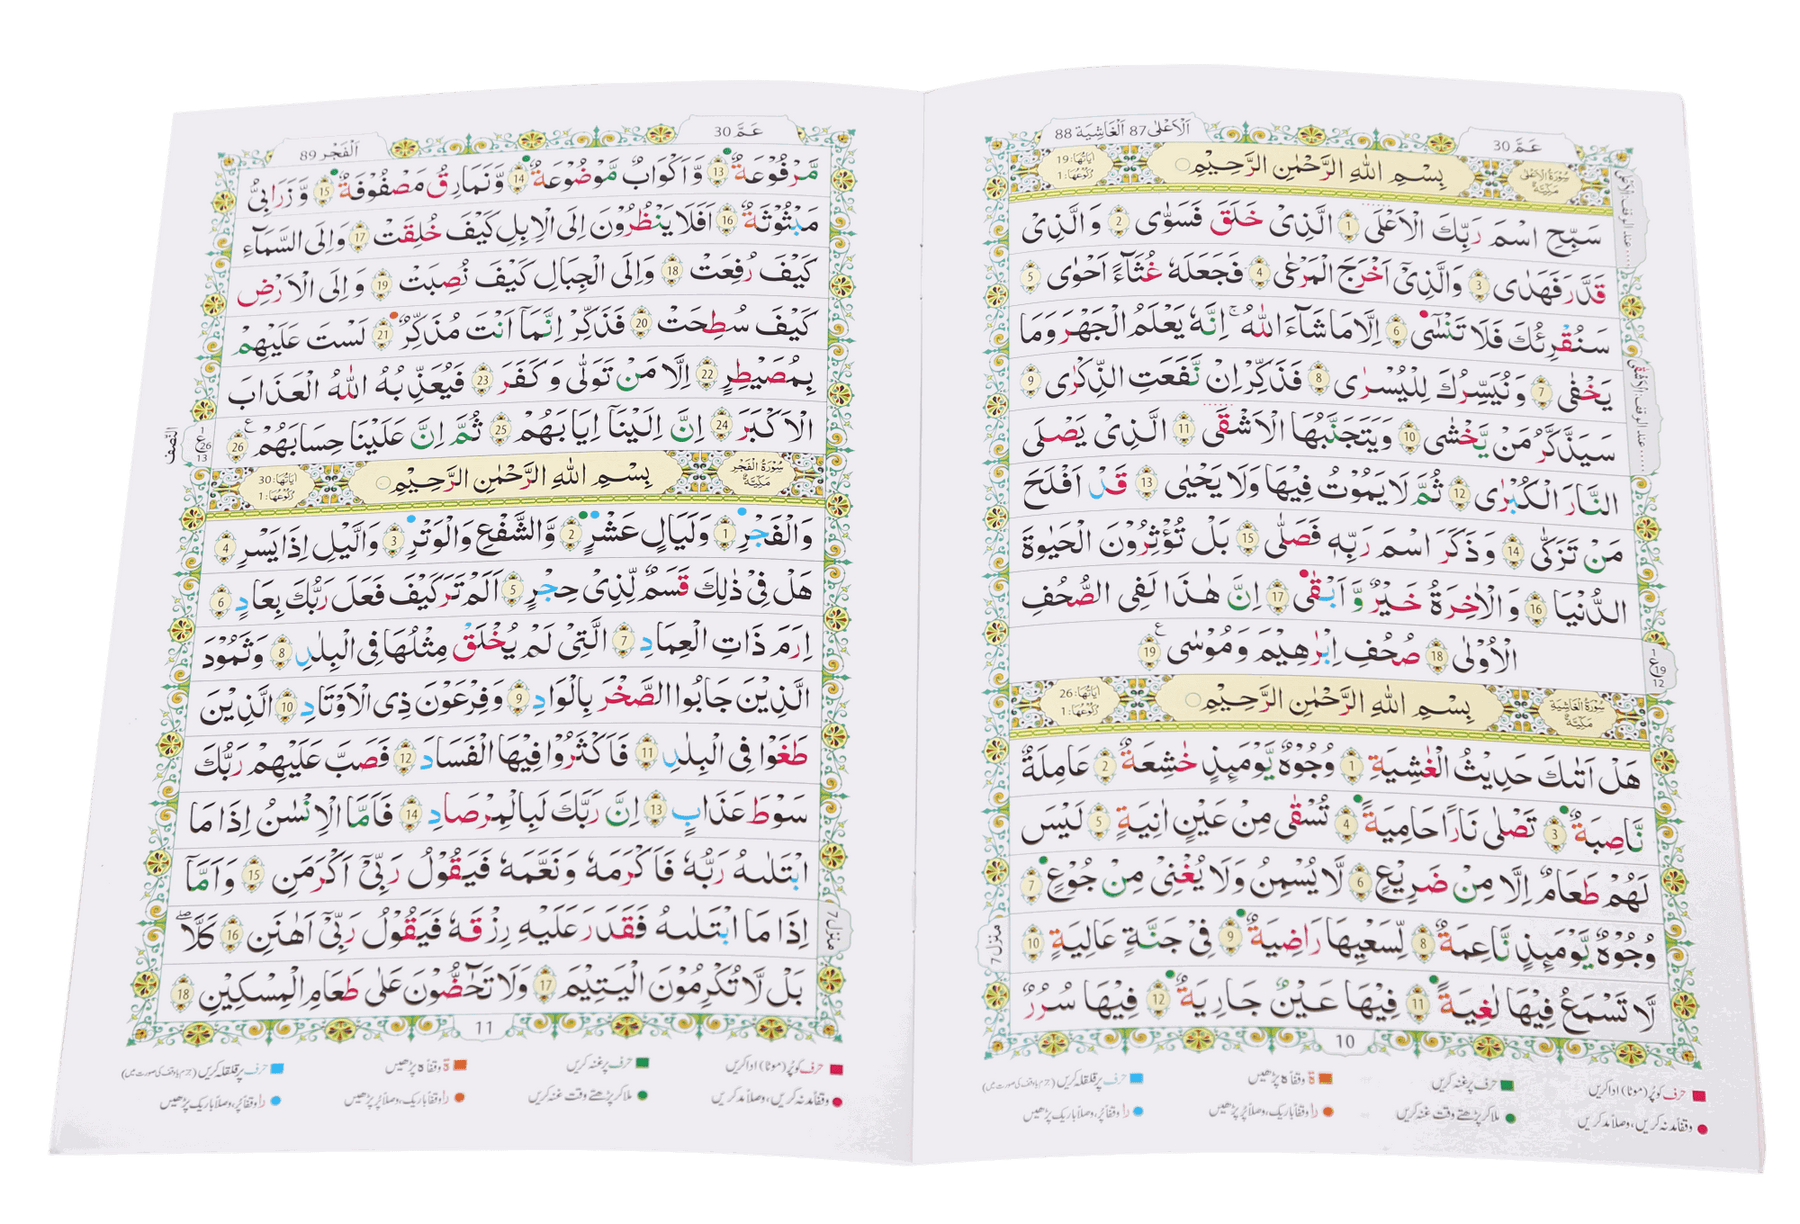 عَمَّ 30
اَلْاَعْلٰى 87 اَلْغَاشِيَة 88
سُوْرَةُ الْاَعْلٰى مَكِّيَّةٌ
بِسْمِ اللّٰهِ الرَّحْمٰنِ الرَّحِيْمِ
اٰيَاتُهَا: 19
رُكُوْعُهَا: 1
سَبِّحِ اسْمَ رَبِّكَ الْاَعْلَى 1 الَّذِىْ خَلَقَ فَسَوّٰى 2 وَ الَّذِىْ
قَدَّرَ فَهَدٰى 3 وَالَّذِىْۤ اَخْرَجَ الْمَرْعٰى 4 فَجَعَلَهٗ غُثَآءً اَحْوٰى 5
سَنُقْرِئُكَ فَلَا تَنْسٰٓى 6 اِلَّا مَا شَآءَ اللّٰهُ ؕ اِنَّهٗ يَعْلَمُ الْجَهْرَ وَمَا
يَخْفٰى 7 وَنُيَسِّرُكَ لِلْيُسْرٰى 8 فَذَكِّرْ اِنْ نَّفَعَتِ الذِّكْرٰى 9
سَيَذَّكَّرُ مَنْ يَّخْشٰى 10 وَيَتَجَنَّبُهَا الْاَشْقَى 11 الَّذِىْ يَصْلَى
النَّارَ الْكُبْرٰى 12 ثُمَّ لَا يَمُوْتُ فِيْهَا وَلَا يَحْيٰى 13 قَدْ اَفْلَحَ
مَنْ تَزَكّٰى 14 وَذَكَرَ اسْمَ رَبِّهٖ فَصَلّٰى 15 بَلْ تُؤْثِرُوْنَ الْحَيٰوةَ
الدُّنْيَا 16 وَ الْاٰخِرَةُ خَيْرٌ وَّ اَبْقٰى 17 اِنَّ هٰذَا لَفِى الصُّحُفِ
الْاُوْلٰى 18 صُحُفِ اِبْرٰهِيْمَ وَمُوْسٰى 19
سُوْرَةُ الْغَاشِيَةِ مَكِّيَّةٌ
بِسْمِ اللّٰهِ الرَّحْمٰنِ الرَّحِيْمِ
اٰيَاتُهَا: 26
رُكُوْعُهَا: 1
هَلْ اَتٰىكَ حَدِيْثُ الْغٰشِيَةِ 1 وُجُوْهٌ يَّوْمَئِذٍ خٰشِعَةٌ 2 عَامِلَةٌ
نَّاصِبَةٌ 3 تَصْلٰى نَارًا حَامِيَةً 4 تُسْقٰى مِنْ عَيْنٍ اٰنِيَةٍ 5 لَيْسَ
لَهُمْ طَعَامٌ اِلَّا مِنْ ضَرِيْعٍ 6 لَّا يُسْمِنُ وَلَا يُغْنِىْ مِنْ جُوْعٍ 7
وُجُوْهٌ يَّوْمَئِذٍ نَّاعِمَةٌ 8 لِّسَعْيِهَا رَاضِيَةٌ 9 فِىْ جَنَّةٍ عَالِيَةٍ 10
لَّا تَسْمَعُ فِيْهَا لٰغِيَةً 11 فِيْهَا عَيْنٌ جَارِيَةٌ 12 فِيْهَا سُرُرٌ
منزل 7
10
حرف کو پُر (موٹا) ادا کریں
حرف پر غنہ کریں
ة وقفاً ه پڑھیں
حرف پر قلقلہ کریں (جزم یا وقف کی صورت میں)
وقفاً مد نہ کریں، وصلاً مد کریں
ملا کر پڑھتے وقت غنہ کریں
را وقفاً باریک، وصلاً پُر پڑھیں
را وقفاً پُر، وصلاً باریک پڑھیں
عَمَّ 30
اَلْفَجْر 89
مَّرْفُوْعَةٌ 13 وَّ اَكْوَابٌ مَّوْضُوْعَةٌ 14 وَّنَمَارِقُ مَصْفُوْفَةٌ 15 وَّ زَرَابِىُّ
مَبْثُوْثَةٌ 16 اَفَلَا يَنْظُرُوْنَ اِلَى الْاِبِلِ كَيْفَ خُلِقَتْ 17 وَاِلَى السَّمَآءِ
كَيْفَ رُفِعَتْ 18 وَاِلَى الْجِبَالِ كَيْفَ نُصِبَتْ 19 وَاِلَى الْاَرْضِ
كَيْفَ سُطِحَتْ 20 فَذَكِّرْ اِنَّمَاۤ اَنْتَ مُذَكِّرٌ 21 لَسْتَ عَلَيْهِمْ
بِمُصَۜيْطِرٍ 22 اِلَّا مَنْ تَوَلّٰى وَكَفَرَ 23 فَيُعَذِّبُهُ اللّٰهُ الْعَذَابَ
الْاَكْبَرَ 24 اِنَّ اِلَيْنَاۤ اِيَابَهُمْ 25 ثُمَّ اِنَّ عَلَيْنَا حِسَابَهُمْ 26
النصف
سُوْرَةُ الْفَجْرِ مَكِّيَّةٌ
بِسْمِ اللّٰهِ الرَّحْمٰنِ الرَّحِيْمِ
اٰيَاتُهَا: 30
رُكُوْعُهَا: 1
وَالْفَجْرِ 1 وَلَيَالٍ عَشْرٍ 2 وَّالشَّفْعِ وَالْوَتْرِ 3 وَالَّيْلِ اِذَا يَسْرِ 4
هَلْ فِىْ ذٰلِكَ قَسَمٌ لِّذِىْ حِجْرٍ 5 اَلَمْ تَرَ كَيْفَ فَعَلَ رَبُّكَ بِعَادٍ 6
اِرَمَ ذَاتِ الْعِمَادِ 7 الَّتِىْ لَمْ يُخْلَقْ مِثْلُهَا فِى الْبِلَادِ 8 وَثَمُوْدَ
الَّذِيْنَ جَابُوا الصَّخْرَ بِالْوَادِ 9 وَفِرْعَوْنَ ذِى الْاَوْتَادِ 10 الَّذِيْنَ
طَغَوْا فِى الْبِلَادِ 11 فَاَكْثَرُوْا فِيْهَا الْفَسَادَ 12 فَصَبَّ عَلَيْهِمْ رَبُّكَ
سَوْطَ عَذَابٍ 13 اِنَّ رَبَّكَ لَبِالْمِرْصَادِ 14 فَاَمَّا الْاِنْسٰنُ اِذَا مَا
ابْتَلٰىهُ رَبُّهٗ فَاَكْرَمَهٗ وَنَعَّمَهٗ فَيَقُوْلُ رَبِّىْۤ اَكْرَمَنِ 15 وَاَمَّاۤ
اِذَا مَا ابْتَلٰىهُ فَقَدَرَ عَلَيْهِ رِزْقَهٗ فَيَقُوْلُ رَبِّىْۤ اَهَانَنِ 16 كَلَّا
بَلْ لَّا تُكْرِمُوْنَ الْيَتِيْمَ 17 وَلَا تَحٰٓضُّوْنَ عَلٰى طَعَامِ الْمِسْكِيْنِ 18
منزل 7
11
حرف کو پُر (موٹا) ادا کریں
حرف پر غنہ کریں
ة وقفاً ه پڑھیں
حرف پر قلقلہ کریں (جزم یا وقف کی صورت میں)
وقفاً مد نہ کریں، وصلاً مد کریں
ملا کر پڑھتے وقت غنہ کریں
را وقفاً باریک، وصلاً پُر پڑھیں
را وقفاً پُر، وصلاً باریک پڑھیں